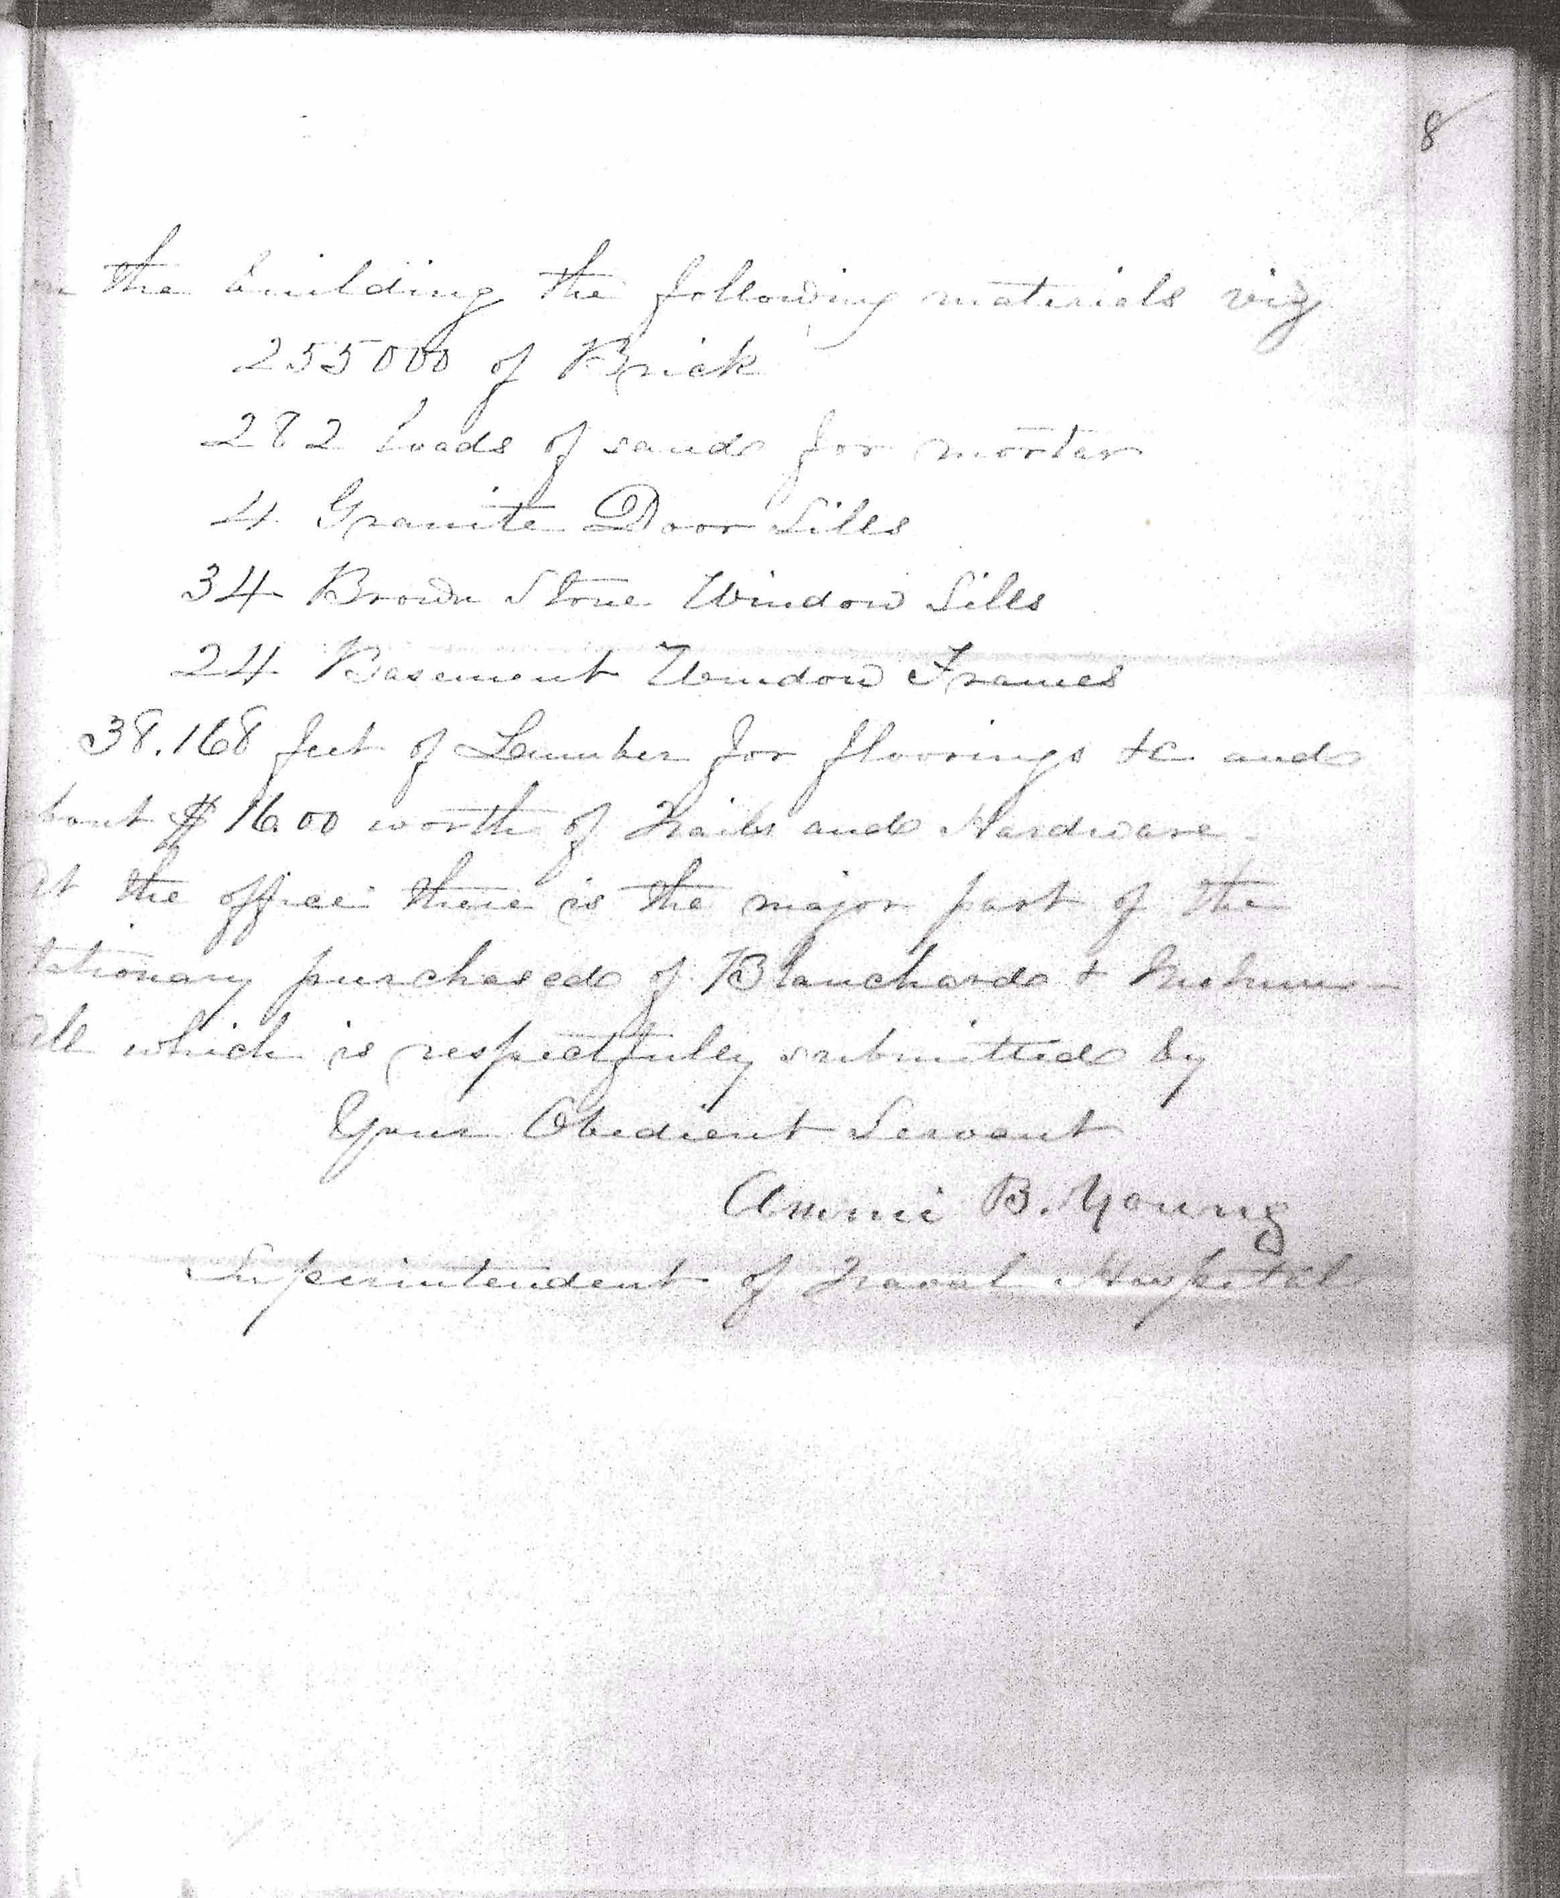 8
in the building the following materials viz
255000 of Brick
282 loads of sand for mortar
4 Granite Door Sills
34 Brown Stone Window Sills
24 Basement Window Frames
38.168 feet of Lumber for floorings &c and
bout $1600 worth of Nails and Hardware
At the office there is the major part of the
tationary purchased of Blanchard &
All which is respectfully submitted by
Your Obedient Servant
Ammi B. Young
Superintendent of Naval Hospital